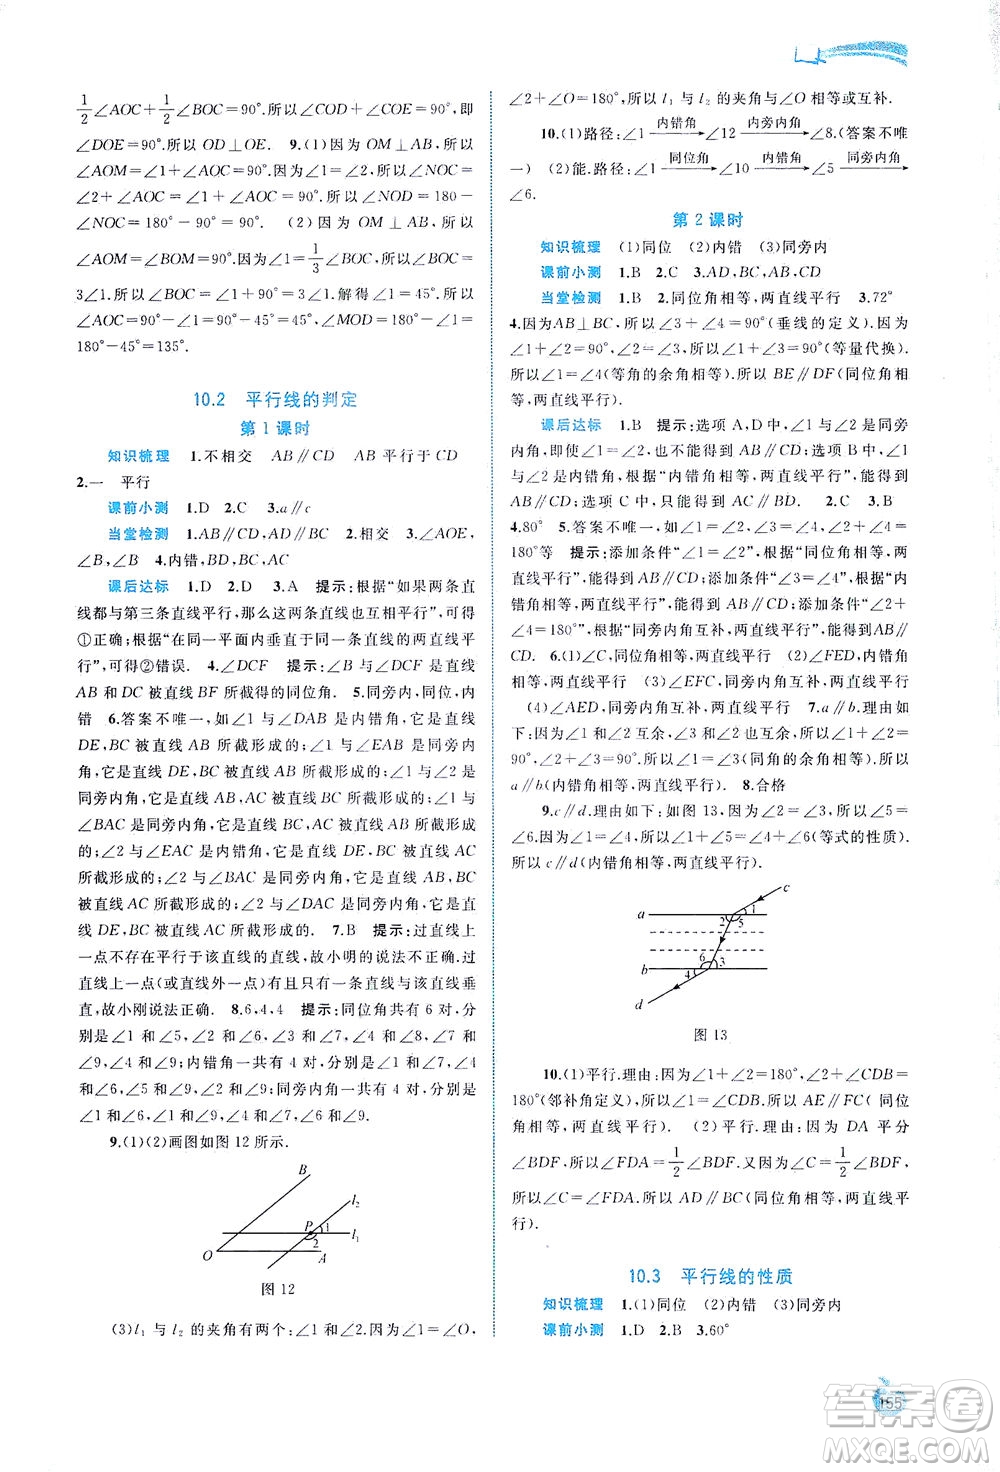 1/2∠AOC+1/2∠BOC=90°.所以∠COD+∠COE=90°,即
∠DOE=90°.所以 OD⊥OE. 9.(1)因为 OM⊥AB,所以
∠AOM=∠1+∠AOC=90°.因为∠1=∠2,所以∠NOC=
∠2+∠AOC=∠1+∠AOC=90°,所以∠NOD=180-
∠NOC=180°-90°=90°. (2)因为 OM⊥AB,所以
∠AOM=∠BOM=90°.因为∠1=1/3∠BOC,所以∠BOC=
3∠1.所以∠BOC-∠1=90°=3∠1-∠1.解得∠1=45°.所以
∠AOC=90°-∠1=90°-45°=45°,∠MOD=180°-∠1=
180°-45°=135°.
10.2 平行线的判定
第 1 课时
知识梳理 1.不相交 AB∥CD AB 平行于 CD
2.一 平行
课前小测 1.D 2.C 3.a∥c
当堂检测 1.AB∥CD,AD∥BC 2.相交 3.∠AOE,
∠BOE,∠B 4.内错,BD,BC,AC
课后达标 1.D 2.D 3.A 提示:根据“如果两条直
线都与第三条直线平行,那么这两条直线也互相平行”,可得
①正确;根据“在同一平面内垂直于同一条直线的两直线平
行”,可得②错误. 4.∠DCF 提示:∠B 与∠DCF 是直线
AB 和 DC 被直线 BF 所截得的同位角. 5.同旁内,同位,内
错 6.答案不唯一,如∠1 与∠DAB 是内错角,它是直线
DE,BC 被直线 AB 所截形成的;∠1 与∠EAB 是同旁内角,
它是直线 DE,BC 被直线 AB 所截形成的;∠1 与∠BAC 是
同旁内角,它是直线 AC,BC 被直线 AB 所截形成的;∠1 与
∠2 是同旁内角,它是直线 AB,AC 被直线 BC 所截形成的;
∠2 与∠EAC 是内错角,它是直线 DE,BC 被直线 AC 所截
形成的;∠2 与∠BAC 是同旁内角,它是直线 AB,BC 被
直线 AC 所截形成的;∠2 与∠DAC 是同旁内角,它是直
线 DE,BC 被直线 AC 所截形成的. 7.B 提示:过直线
上一点不存在平行于该直线的直线,故小明的说法不正确.
过直线上一点(或直线外一点)有且只有一条直线与该直线垂
直,故小刚说法正确. 8.6,4,4 提示:同位角共有 6 对,分
别是∠1 和∠5,∠2 和∠6,∠3 和∠7,∠4 和∠8,∠7 和
∠9,∠4 和∠9;内错角一共有 4 对,分别是∠1 和∠7,∠4
和∠6,∠5 和∠9,∠2 和∠9;同旁内角一共有 4 对,分别是
∠1 和∠6,∠1 和∠9,∠4 和∠7,∠6 和∠9.
9.(1)(2)画图如图 12 所示.
B
l₂
P
1
l₁
2
O
A
图 12
(3)l₁ 与 l₂ 的夹角有两个:∠1 和∠2.因为∠1=∠O,
∠2+∠O=180°,所以 l₁ 与 l₂ 的夹角与∠O 相等或互补.
10.(1)路径:∠1 内错角 ∠12 同旁内角 ∠8.(答案不唯
一) (2)能.路径:∠1 同位角 ∠10 内错角 ∠5 同旁内角
∠6.
第 2 课时
知识梳理 (1)同位 (2)内错 (3)同旁内
课前小测 1.B 2.C 3.AD,BC,AB,CD
当堂检测 1.B 2.同位角相等,两直线平行 3.72°
4.因为AB⊥BC,所以∠3+∠4=90°(垂线的定义).因为
∠1+∠2=90°,∠2=∠3,所以∠1+∠3=90°(等量代换).
所以∠1=∠4(等角的余角相等).所以 BE∥DF(同位角相
等,两直线平行).
课后达标 1.B 提示:选项 A,D 中,∠1 与∠2 是同旁
内角,即使∠1=∠2,也不能得到 AB∥CD;选项 B 中,∠1
与∠2 是内错角,根据“内错角相等,两直线平行”,能得到
AB∥CD;选项 C 中,只能得到 AC∥BD. 2.C 3.B
4.80° 5.答案不唯一,如∠1=∠4,或∠2=∠4,或∠3+∠4=
180°等 提示:添加条件“∠1=∠4”,根据“同位角相等,两
直线平行”,可得 a∥b;添加条件“∠2=∠4”,根据“内
错角相等,两直线平行”,可得 a∥b;添加条件“∠2+∠4=
180°”,根据“同旁内角互补,两直线平行”,可得
a∥b. 6.(1)∠C,同位角相等,两直线平行 (2)∠FED,内错角
相等,两直线平行 (3)∠EFC,同旁内角互补,两直线平行
(4)∠AED,同旁内角互补,两直线平行 7.a∥b.理由如
下:因为∠1+∠2=90°,∠3 与∠2 也互余,所以∠3+∠2=
90°,∠1+∠2=90°,所以∠1=∠3(同角的余角相等).所以
a∥b(内错角相等,两直线平行). 8.合格
9.c∥d.理由如下:如图 13,因为∠2=∠3,所以∠5=
∠6.因为∠1=∠4,所以∠1+∠5=∠4+∠6(等式的性质).
所以 c∥d(内错角相等,两直线平行).
c
a
1
2
5
6
b
3
4
d
图 13
10.(1)平行.理由:因为∠1+∠2=180°,∠2+∠CDB=
180°(邻补角定义),所以∠1=∠CDB.所以 AE∥FC(同位
角相等,两直线平行). (2)平行.理由:因为 DA 平分
∠BDF,所以∠FDA=1/2∠BDF.又因为∠C=1/2∠BDF,
所以∠C=∠FDA.所以 AD∥BC(同位角相等,两直线平
行).
10.3 平行线的性质
知识梳理 1.(1)同位 (2)内错 (3)同旁内
课前小测 1.D 2.B 3.60°
155
答案圈
MXQE.COM